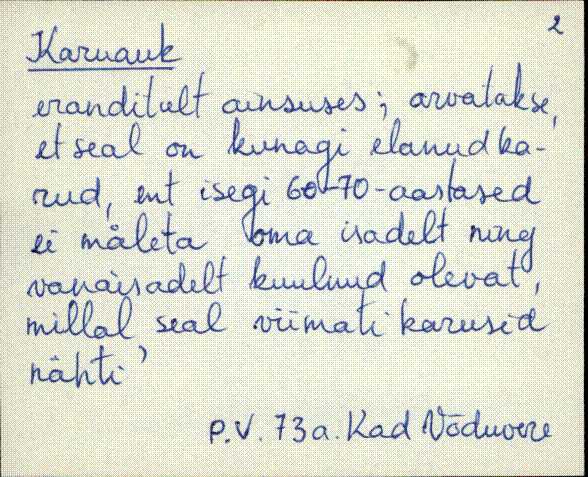 2
Karuauk
eranditult ainsuses; arvatakse,
et seal on kunagi elanud ka-
rud, ent isegi 60-70-aastased
ei mäleta oma isadelt ning
vanaisadelt kuulnud olevat,
millal seal viimati karusid
nähti’
P.V. 73a. Kad Võduvere